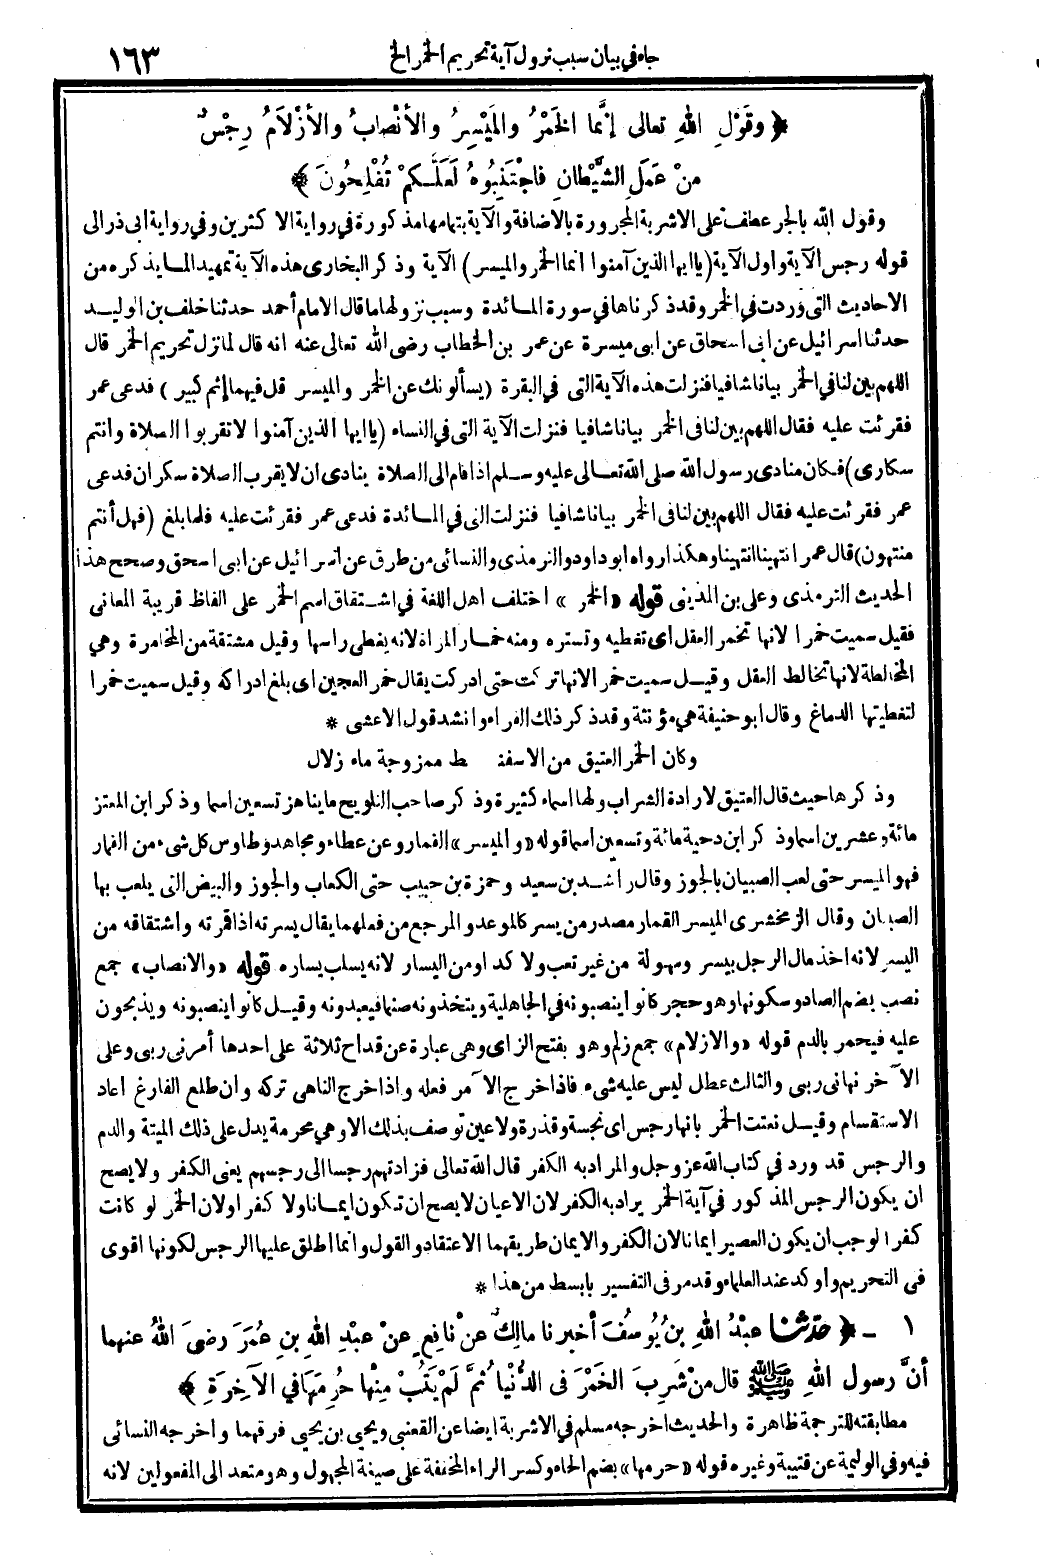 جاء في بيان سبب نزول آية تحريم الخمر الخ ١٦٣
﴿ وقَوْلِ اللهِ تعالى إنَّما الخَمْرُ والمَيْسِرُ والأنْصابُ والأزْلاَمُ رِجْسٌ
مِنْ عَمَلِ الشَّيْطانِ فاجْتَنِبُوهُ لَعَلَّكمْ تُفْلِحُونَ * ﴾
وقول الله بالجر عطف على الاشربة المجرورة بالاضافة والآية بتمامها مذكورة في رواية الاكثرين وفي رواية ابى ذر الى
قوله رجس الآية واول الآية (ياايها الذين آمنوا انما الخمر والميسر) الآية وذكر البخارى هذه الآية تمهيدا لما يذكره من
الاحاديث التي وردت في الخمر وقد ذكرناها في سورة المائدة وسبب نزولها ما قال الامام أحمد حدثنا خلف بن الوليد
حدثنا اسرائيل عن ابى اسحاق عن ابى ميسرة عن عمر بن الخطاب رضى الله تعالى عنه انه قال لما نزل تحريم الخمر قال
اللهم بين لنا في الخمر بيانا شافيا فنزلت هذه الآية التى في البقرة (يسألونك عن الخمر والميسر قل فيهما إثم كبير) فدعى عمر
فقرئت عليه فقال اللهم بين لنا فى الخمر بيانا شافيا فنزلت الآية التى في النساء (ياايها الذين آمنوا لا تقربوا الصلاة وانتم
سكارى) فكان منادى رسول الله صلى الله تعالى عليه وسلم اذا قام الى الصلاة ينادى ان لا يقرب الصلاة سكران فدعى
عمر فقرئت عليه فقال اللهم بين لنا فى الخمر بيانا شافيا فنزلت التى في المائدة فدعى عمر فقرئت عليه فلما بلغ (فهل أنتم
منتهون) قال عمر انتهينا انتهينا وهكذا رواه ابو داود والترمذى والنسائى من طرق عن اسرائيل عن ابى اسحق وصحح هذا
الحديث الترمذى وعلى بن المدينى قوله «الخمر» اختلف اهل اللغة في اشتقاق اسم الخمر على الفاظ قريبة المعانى
فقيل سميت خمرا لانها تخمر العقل اى تغطيه وتستره ومنه خمار المرأة لانه يغطى راسها وقيل مشتقة من المخامرة وهي
المخالطة لانها تخالط العقل وقيل سميت خمرا لانها تركت حتى ادركت يقال خمر العجين اى بلغ ادراكه وقيل سميت خمرا
لتغطيتها الدماغ وقال ابو حنيفة هي مؤنثة وقد ذكر ذلك الفراء وانشد قول الاعشى *
وكان الخمر العتيق من الاسفنـ ـط ممزوجة ماء زلال
وذكرها حيث قال العتيق لارادة الشراب ولها اسماء كثيرة وذكر صاحب التلويح ما يناهز تسعين اسما وذكر ابن المعتز
مائة وعشرين اسما وذكر ابن دحية مائة وتسعين اسما قوله «والميسر» القمار وعن عطاء ومجاهد وطاوس كل شيء من القمار
فهو الميسر حتى لعب الصبيان بالجوز وقال راشد بن سعيد وحمزة بن حبيب حتى الكعاب والجوز والبيض التى يلعب بها
الصبيان وقال الزمخشرى الميسر القمار مصدر من يسر كالموعد والمرجع من فعلهما يقال يسرته اذا قمرته واشتقاقه من
اليسر لانه اخذ مال الرجل بيسر وسهولة من غير تعب ولا كد او من اليسار لانه يسلب يساره قوله «والانصاب» جمع
نصب بضم الصاد وسكونها وهو حجر كانوا ينصبونه في الجاهلية ويتخذونه صنما فيعبدونه وقيل كانوا ينصبونه ويذبحون
عليه فيحمر بالدم قوله «والازلام» جمع زلم وهو بفتح الزاى وهى عبارة عن قداح ثلاثة على احدها أمرنى ربى وعلى
الآخر نهانى ربى والثالث عطل ليس عليه شيء فاذا خرج الآمر فعله واذا خرج الناهي تركه وان طلع الفارغ اعاد
الاستقسام وقيل نعتت الخمر بانها رجس اى نجسة وقذرة ولا عين توصف بذلك الا وهي محرمة يدل على ذلك الميتة والدم
والرجس قد ورد في كتاب الله عز وجل والمراد به الكفر قال الله تعالى فزادتهم رجسا الى رجسهم يعنى الكفر ولا يصح
ان يكون الرجس المذكور في آية الخمر يراد به الكفر لان الاعيان لا يصح ان تكون ايمانا ولا كفرا ولان الخمر لو كانت
كفرا لوجب ان يكون العصير ايمانا لان الكفر والايمان طريقهما الاعتقاد والقول وانما اطلق عليها الرجس لكونها اقوى
فى التحريم واوكد عند العلماء وقد مر فى التفسير بابسط من هذا *
١ ـ ﴿ حدّثنا عبْدُ اللهِ بنُ يُوسُفَ أخبرنا مالِكٌ عنْ نافِعٍ عنْ عبْدِ اللهِ بنِ عُمَرَ رضىَ اللهُ عنهما
أنَّ رسول اللهِ ﷺ قال منْ شَرِبَ الخَمْرَ فى الدُّنْيا ثُمَّ لَمْ يَتُبْ مِنْها حُرِمَها في الآخِرَةِ ﴾
مطابقته للترجمة ظاهرة والحديث اخرجه مسلم في الاشربة ايضا عن القعنبى ويحيى بن يحيى فرقهما واخرجه النسائى
فيه وفي الوليمة عن قتيبة وغيره قوله «حرمها» بضم الحاء وكسر الراء المخففة على صيغة المجهول وهو متعد الى المفعولين لانه